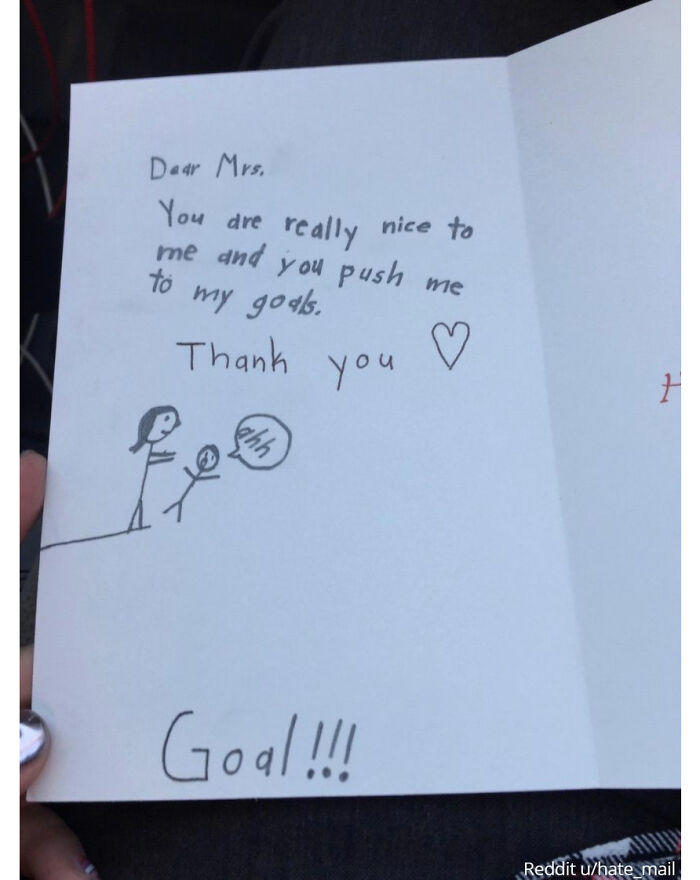 Dear Mrs.
You are really nice to
me and you push me
to my goals.
Thank you
ahh
Goal!!!
H
Reddit u/hate_mail